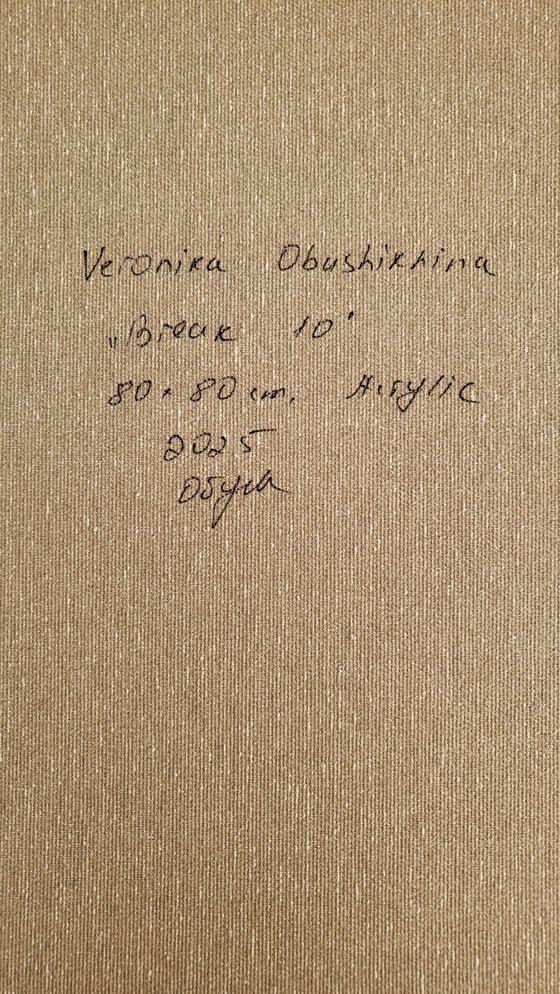 Veronika Obushikhina
„Break 10"
80 × 80 cm, Acrylic
2025